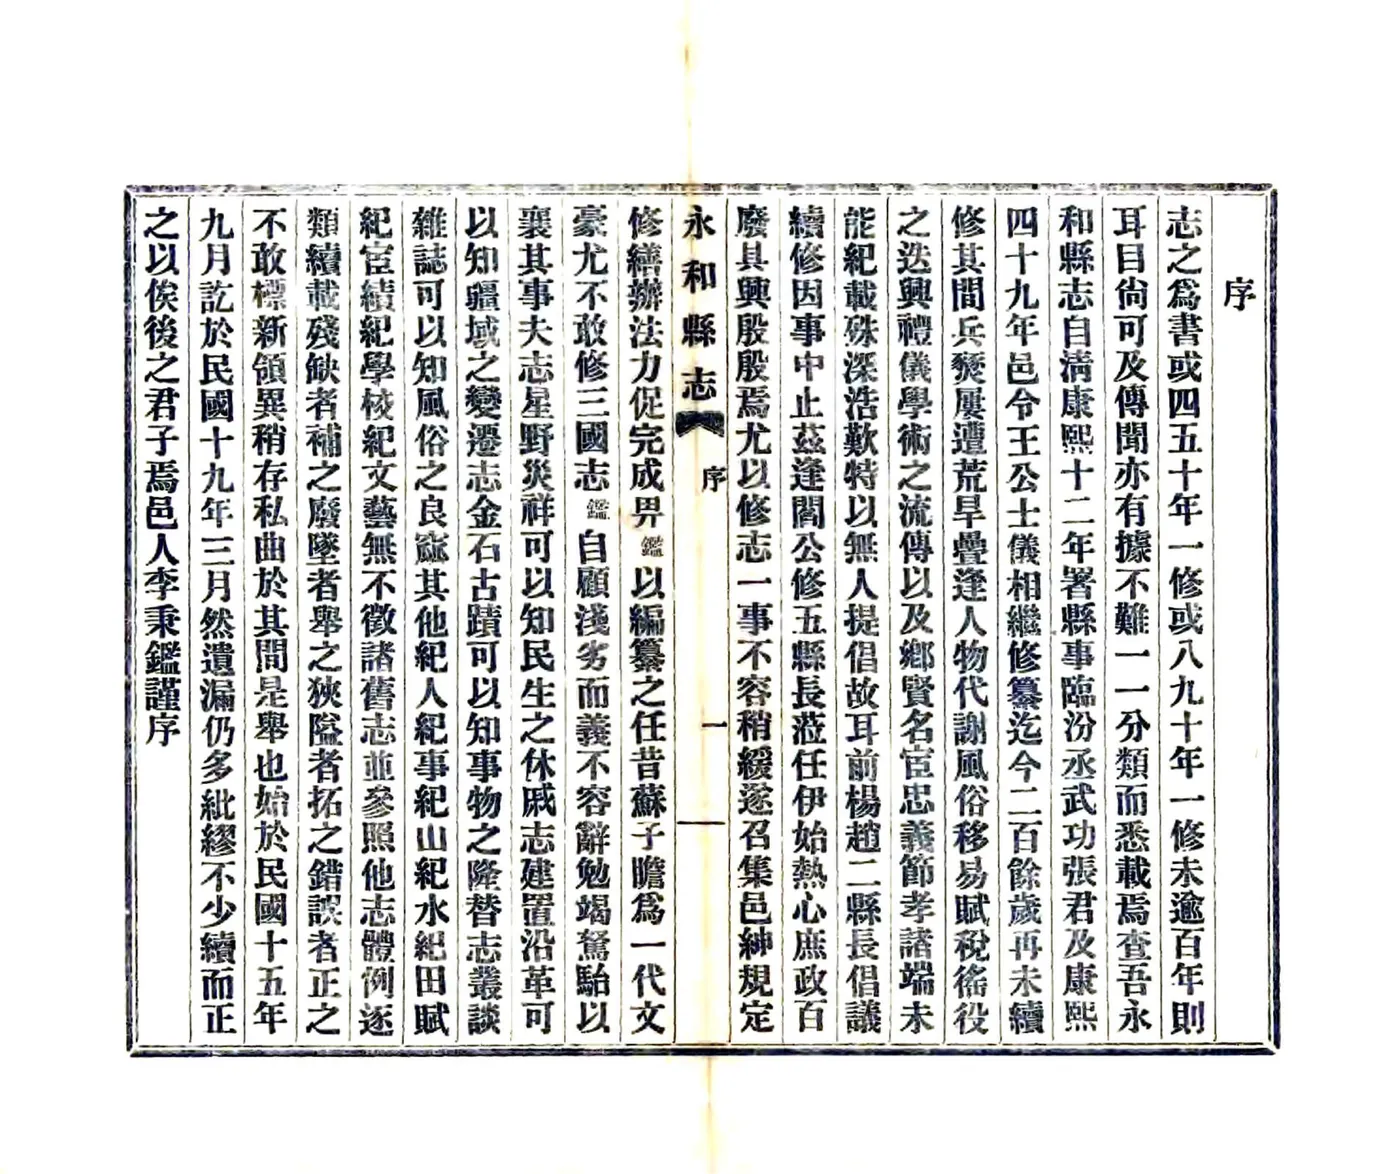 序
志之爲書或四五十年一修或八九十年一修未逾百年則
耳目尙可及傳聞亦有據不難一一分類而悉載焉查吾永
和縣志自淸康熙十二年署縣事臨汾丞武功張君及康熙
四十九年邑令王公士儀相繼修纂迄今二百餘歲再未續
修其間兵燹屢遭荒旱疊逢人物代謝風俗移易賦稅徭役
之迭興禮儀學術之流傳以及鄕賢名宦忠義節孝諸端未
能紀載殊深浩歎特以無人提倡故耳前楊趙二縣長倡議
續修因事中止茲逢閻公修五縣長蒞任伊始熱心庶政百
廢具興殷殷焉尤以修志一事不容稍緩遂召集邑紳規定
永和縣志 序 一
修繕辦法力促完成畀鑑以編纂之任昔蘇子瞻爲一代文
豪尤不敢修三國志鑑自顧淺劣而義不容辭勉竭駑駘以
襄其事夫志星野災祥可以知民生之休戚志建置沿革可
以知疆域之變遷志金石古蹟可以知事物之隆替志叢談
雜誌可以知風俗之良窳其他紀人紀事紀山紀水紀田賦
紀宦績紀學校紀文藝無不徵諸舊志並參照他志體例逐
類續載殘缺者補之廢墜者舉之狹隘者拓之錯誤者正之
不敢標新領異稍存私曲於其間是舉也始於民國十五年
九月訖於民國十九年三月然遺漏仍多紕繆不少續而正
之以俟後之君子焉邑人李秉鑑謹序